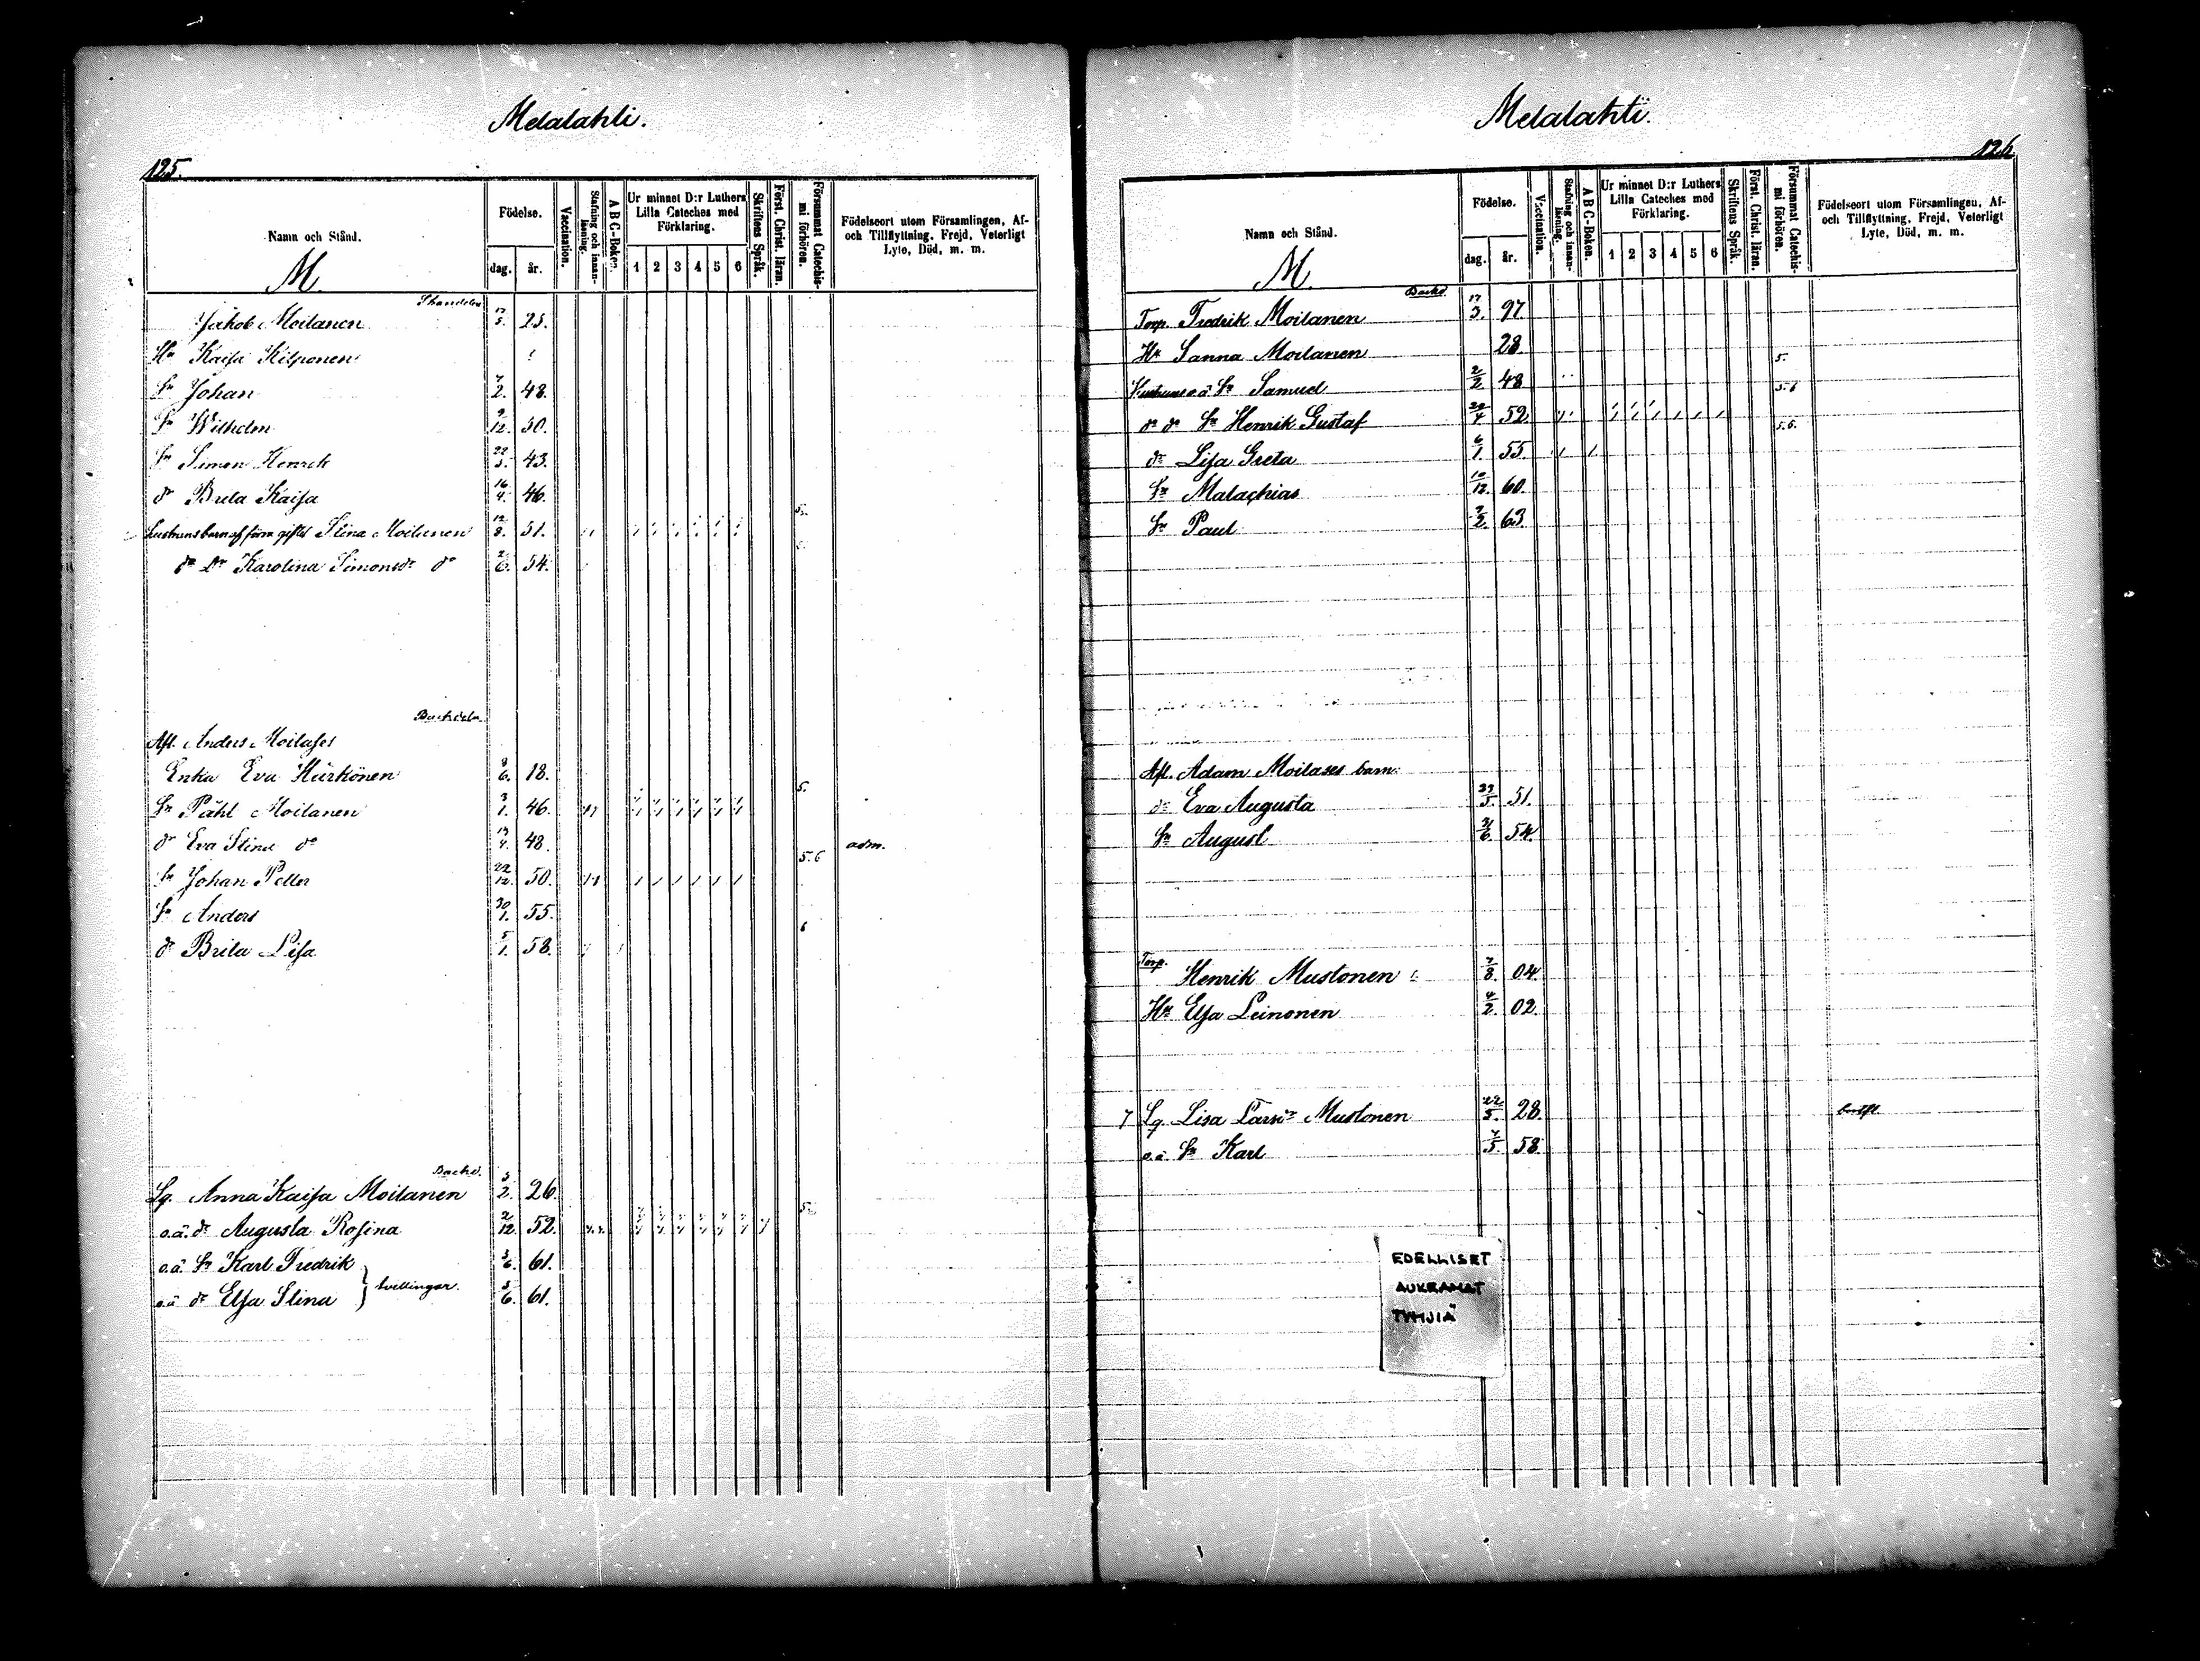 Melalahti.
125.
Namn och Stånd.
M.
Födelse.
dag. år.
Vaccination.
Stafning och innan-läsning.
A B C-Boken.
Ur minnet D:r Luthers Lilla Cateches med Förklaring.
1 2 3 4 5 6
Skriftens Språk.
Först. Christ. läran.
Försummat Catechis-mi förhören.
Födelseort utom Församlingen, Af- och Tillflyttning, Frejd, Veterligt Lyte, Död, m. m.
Jakob Moilanen 17/5. 25.
Hu Kaisa Kilponen
Sn Johan 7/2. 48.
Sn Wilhelm 9/12. 50.
Sn Simon Henrik 43.
dr Brita Kaisa 16/4. 46.
Stina Moilanen 12/8. 51. 5.
do Dr Karolina Simonsdr do 2/6. 54.
Afl. Anders Moilases
Enka Eva Härkönen 8/6. 18.
Sn Påhl Moilanen 3/1. 46. 5.
dr Eva Stina do 48. adm.
Sn Johan Petter 22/12. 50. 5.6
Sn Anders 30/1. 55.
dr Brita Lisa 5/1. 58. 6
Backd.
Lg. Anna Kaisa Moilanen 3/2. 26.
o.ä. dr Augusta Rosina 2/12. 52. 5.
o.ä. Sn Karl Fredrik 3/6. 61.
o.ä dr Elsa Stina } tvillingar. 3/6. 61.
Melalahti.
126
Namn och Stånd.
M.
Födelse.
dag. år.
Vaccination.
Stafning och innan-läsning.
A B C-Boken.
Ur minnet D:r Luthers Lilla Cateches med Förklaring.
1 2 3 4 5 6
Skriftens Språk.
Först. Christ. läran.
Försummat Catechis-mi förhören.
Födelseort utom Församlingen, Af- och Tillflyttning, Frejd, Veterligt Lyte, Död, m. m.
Backd.
Torp. Fredrik Moilanen 17/3. 97
Hu Sanna Moilanen 28.
o.ä Sn Samuel 2/2 48 5.
do do Sn Henrik Gustaf 29/4 52. 5.6
dr Lisa Greta 6/1. 55. 5.6.
Sn Malachias 10/12. 60.
Sn Paul 7/2. 63.
Afl. Adam Moilases barn:
dr Eva Augusta 51.
Sn August 54.
Torp.
Henrik Mustonen 7/8. 04.
Hu Elsa Leinonen 4/2. 02.
Lg. Lisa Larsdr Mustonen 22/5. 28.
o.ä. Sn Karl 7/5 58.
EDELLISET
AUKEAMAT
TYHJIÄ